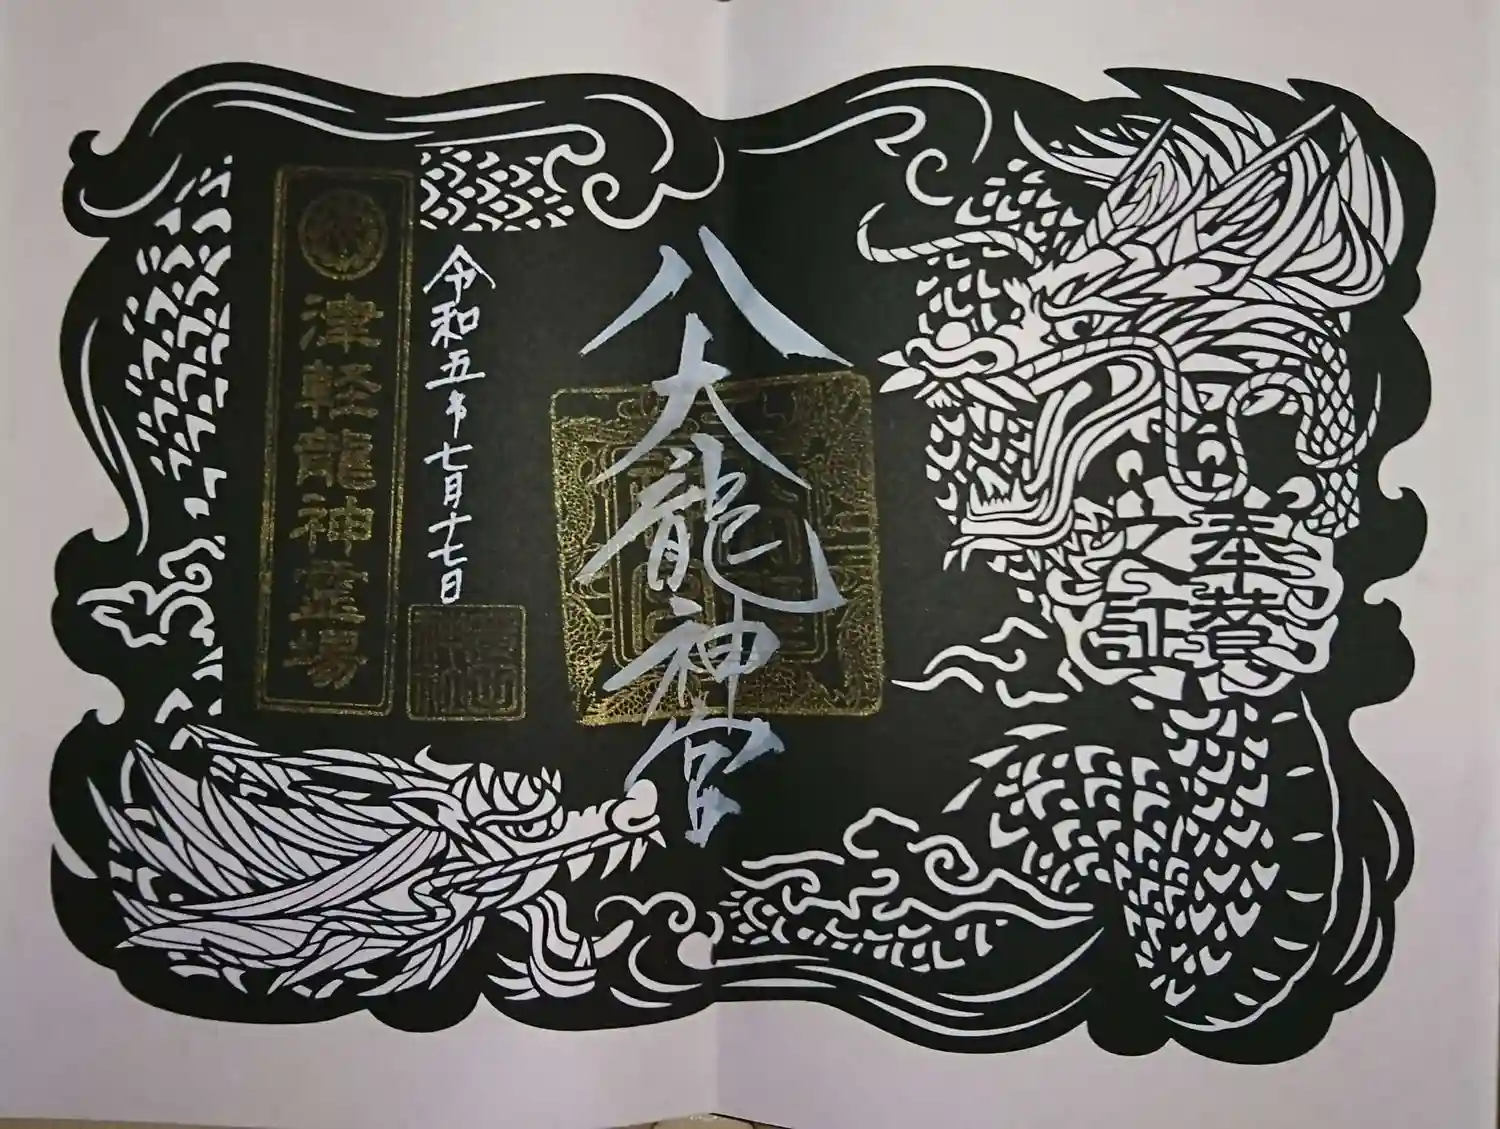 奉賛
之証
八大龍神宮
令和五年七月十七日
津軽龍神霊場